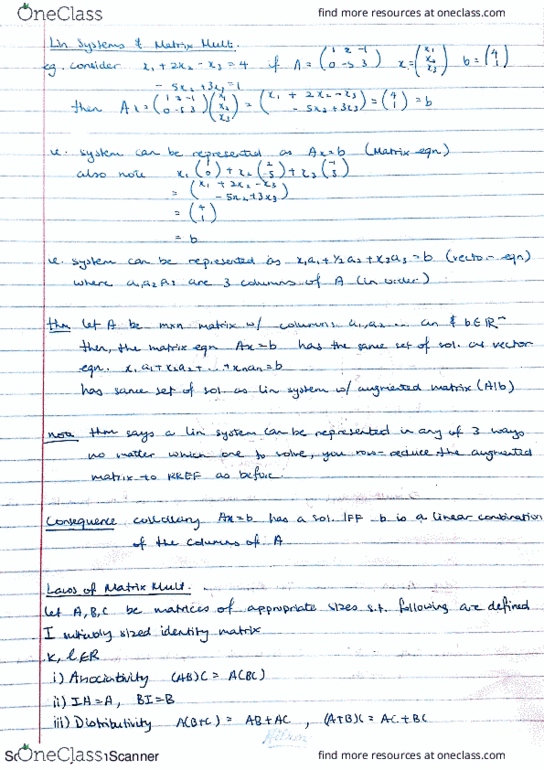 OneClass
find more resources at oneclass.com
Lin Systems & Matrix Mult.
eg. consider x₁ + 2x₂ - x₃ = 4 if A = (1 2 -1 / 0 -5 3) x = (x₁ / x₂ / x₃) b = (4 / 1)
- 5x₂ + 3x₃ = 1
then Ax = (1 2 -1 / 0 -5 3)(x₁ / x₂ / x₃) = (x₁ + 2x₂ - x₃ / - 5x₂ + 3x₃) = (4 / 1) = b
ie. system can be represented as Ax = b (Matrix eqn)
also note x₁(1 / 0) + x₂(2 / -5) + x₃(-1 / 3)
= (x₁ + 2x₂ - x₃ / - 5x₂ + 3x₃)
= (4 / 1)
= b
ie. system can be represented as x₁a₁ + x₂a₂ + x₃a₃ = b (vector eqn)
where a₁, a₂, a₃ are 3 columns of A (in order)
thm let A be mxn matrix w/ columns a₁, a₂ ... an & b∈ℝᵐ
then, the matrix eqn Ax = b has the same set of sol. as vector
eqn. x₁a₁ + x₂a₂ + ... + xnan = b
has same set of sol. as lin system w/ augmented matrix (A|b)
note thm says a lin system can be represented in any of 3 ways
no matter which one to solve, you row-reduce the augmented
matrix to RREF as before.
Consequence corollary Ax = b has a sol. IFF b is a linear combination
of the columns of A
Laws of Matrix Mult.
let A, B, C be matrices of appropriate sizes s.t. following are defined
I suitably sized identity matrix
k, l ∈ ℝ
i) Associativity (AB)C = A(BC)
ii) IA = A, BI = B
iii) Distributivity A(B+C) = AB + AC, (A+B)C = AC + BC
OneClass
Scanner
find more resources at oneclass.com